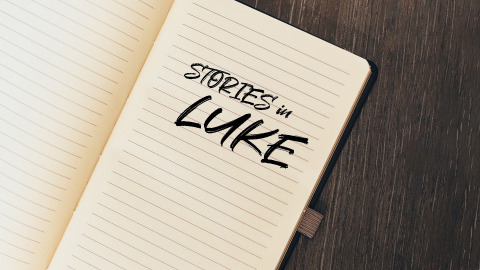 STORIES in
LUKE